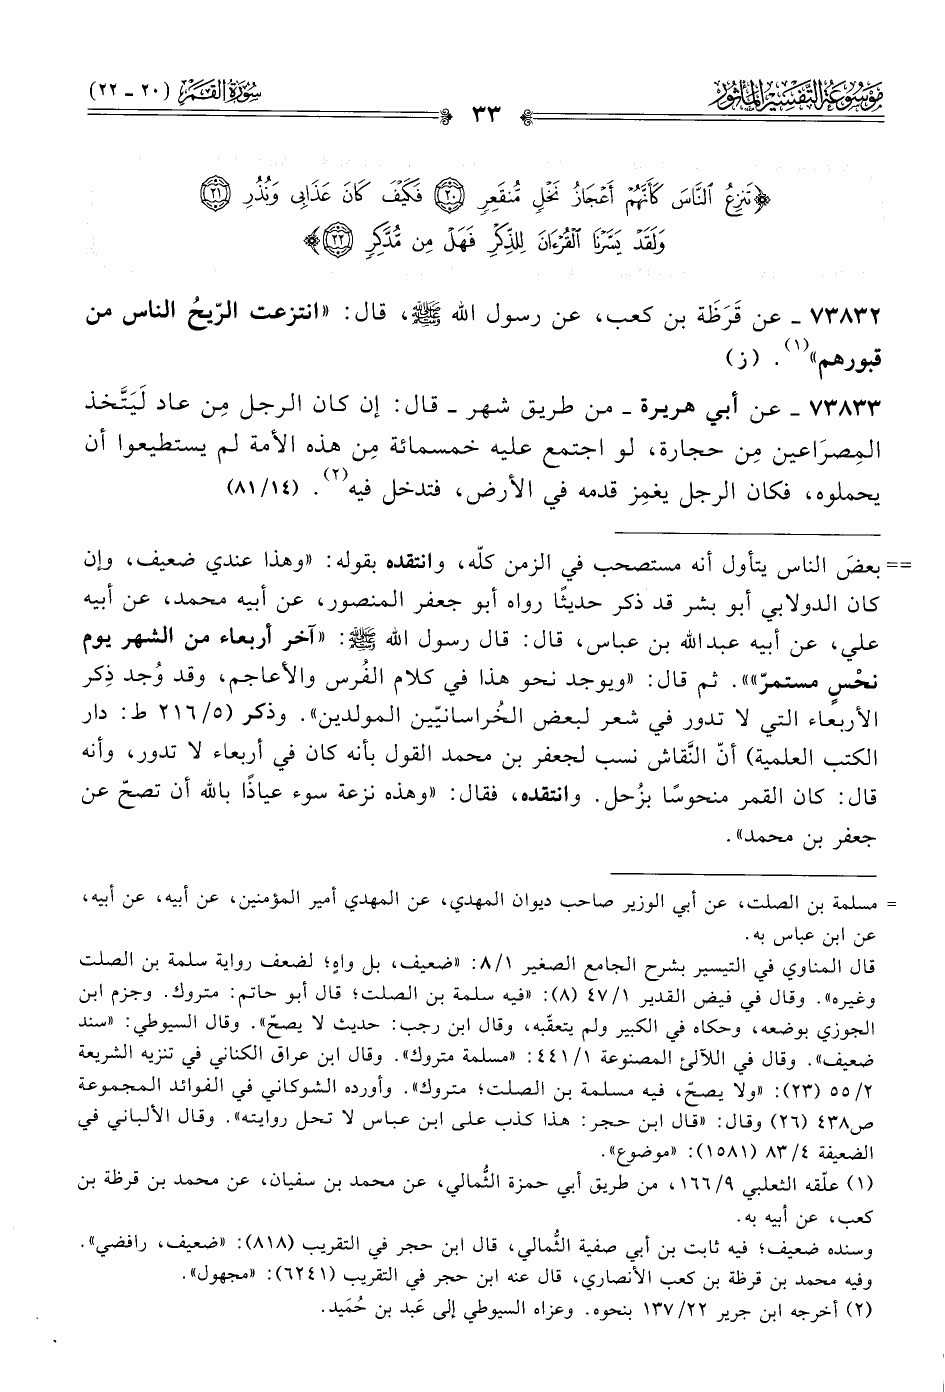 مَوْسُوعَة التَّفْسِير المَأْثُور
٣٣
سُورَةُ القَمَر (٢٠ - ٢٢)
﴿تَنزِعُ ٱلنَّاسَ كَأَنَّهُمْ أَعْجَازُ نَخْلٍ مُّنقَعِرٍ ٢٠ فَكَيْفَ كَانَ عَذَابِى وَنُذُرِ ٢١
وَلَقَدْ يَسَّرْنَا ٱلْقُرْءَانَ لِلذِّكْرِ فَهَلْ مِن مُّدَّكِرٍ ٢٢﴾
٧٣٨٣٢ ـ عن قَرَظَة بن كعب، عن رسول الله ﷺ، قال: «انتزعت الرّيحُ الناس من
قبورهم»(١). (ز)
٧٣٨٣٣ ـ عن أبي هريرة ـ من طريق شهر ـ قال: إن كان الرجل مِن عاد لَيَتَّخذ
المِصرَاعين مِن حجارة، لو اجتمع عليه خمسمائة مِن هذه الأمة لم يستطيعوا أن
يحملوه، فكان الرجل يغمِز قدمه في الأرض، فتدخل فيه(٢). (٨١/١٤)
== بعضَ الناس يتأول أنه مستصحب في الزمن كلّه، وانتقده بقوله: «وهذا عندي ضعيف، وإن
كان الدولابي أبو بشر قد ذكر حديثًا رواه أبو جعفر المنصور، عن أبيه محمد، عن أبيه
علي، عن أبيه عبدالله بن عباس، قال: قال رسول الله ﷺ: «آخر أربعاء من الشهر يوم
نحْسٍ مستمرّ»». ثم قال: «ويوجد نحو هذا في كلام الفُرس والأعاجم، وقد وُجد ذِكر
الأربعاء التي لا تدور في شعر لبعض الخُراسانيّين المولدين». وذكر (٢١٦/٥ ط: دار
الكتب العلمية) أنّ النَّقاش نسب لجعفر بن محمد القول بأنه كان في أربعاء لا تدور، وأنه
قال: كان القمر منحوسًا بزُحل. وانتقده، فقال: «وهذه نزعة سوء عياذًا بالله أن تصحّ عن
جعفر بن محمد».
= مسلمة بن الصلت، عن أبي الوزير صاحب ديوان المهدي، عن المهدي أمير المؤمنين، عن أبيه، عن أبيه،
عن ابن عباس به.
قال المناوي في التيسير بشرح الجامع الصغير ٨/١: «ضعيف، بل واهٍ؛ لضعف رواية سلمة بن الصلت
وغيره». وقال في فيض القدير ٤٧/١ (٨): «فيه سلمة بن الصلت؛ قال أبو حاتم: متروك. وجزم ابن
الجوزي بوضعه، وحكاه في الكبير ولم يتعقّبه، وقال ابن رجب: حديث لا يصحّ». وقال السيوطي: «سند
ضعيف». وقال في اللآلئ المصنوعة ٤٤١/١: «مسلمة متروك». وقال ابن عراق الكناني في تنزيه الشريعة
٥٥/٢ (٢٣): «ولا يصحّ، فيه مسلمة بن الصلت؛ متروك». وأورده الشوكاني في الفوائد المجموعة
ص٤٣٨ (٢٦) وقال: «قال ابن حجر: هذا كذب على ابن عباس لا تحل روايته». وقال الألباني في
الضعيفة ٨٣/٤ (١٥٨١): «موضوع».
(١) علّقه الثعلبي ١٦٦/٩، من طريق أبي حمزة الثُّمالي، عن محمد بن سفيان، عن محمد بن قرظة بن
كعب، عن أبيه به.
وسنده ضعيف؛ فيه ثابت بن أبي صفية الثُّمالي، قال ابن حجر في التقريب (٨١٨): «ضعيف، رافضي».
وفيه محمد بن قرظة بن كعب الأنصاري، قال عنه ابن حجر في التقريب (٦٢٤١): «مجهول».
(٢) أخرجه ابن جرير ١٣٧/٢٢ بنحوه. وعزاه السيوطي إلى عَبد بن حُمَيد.